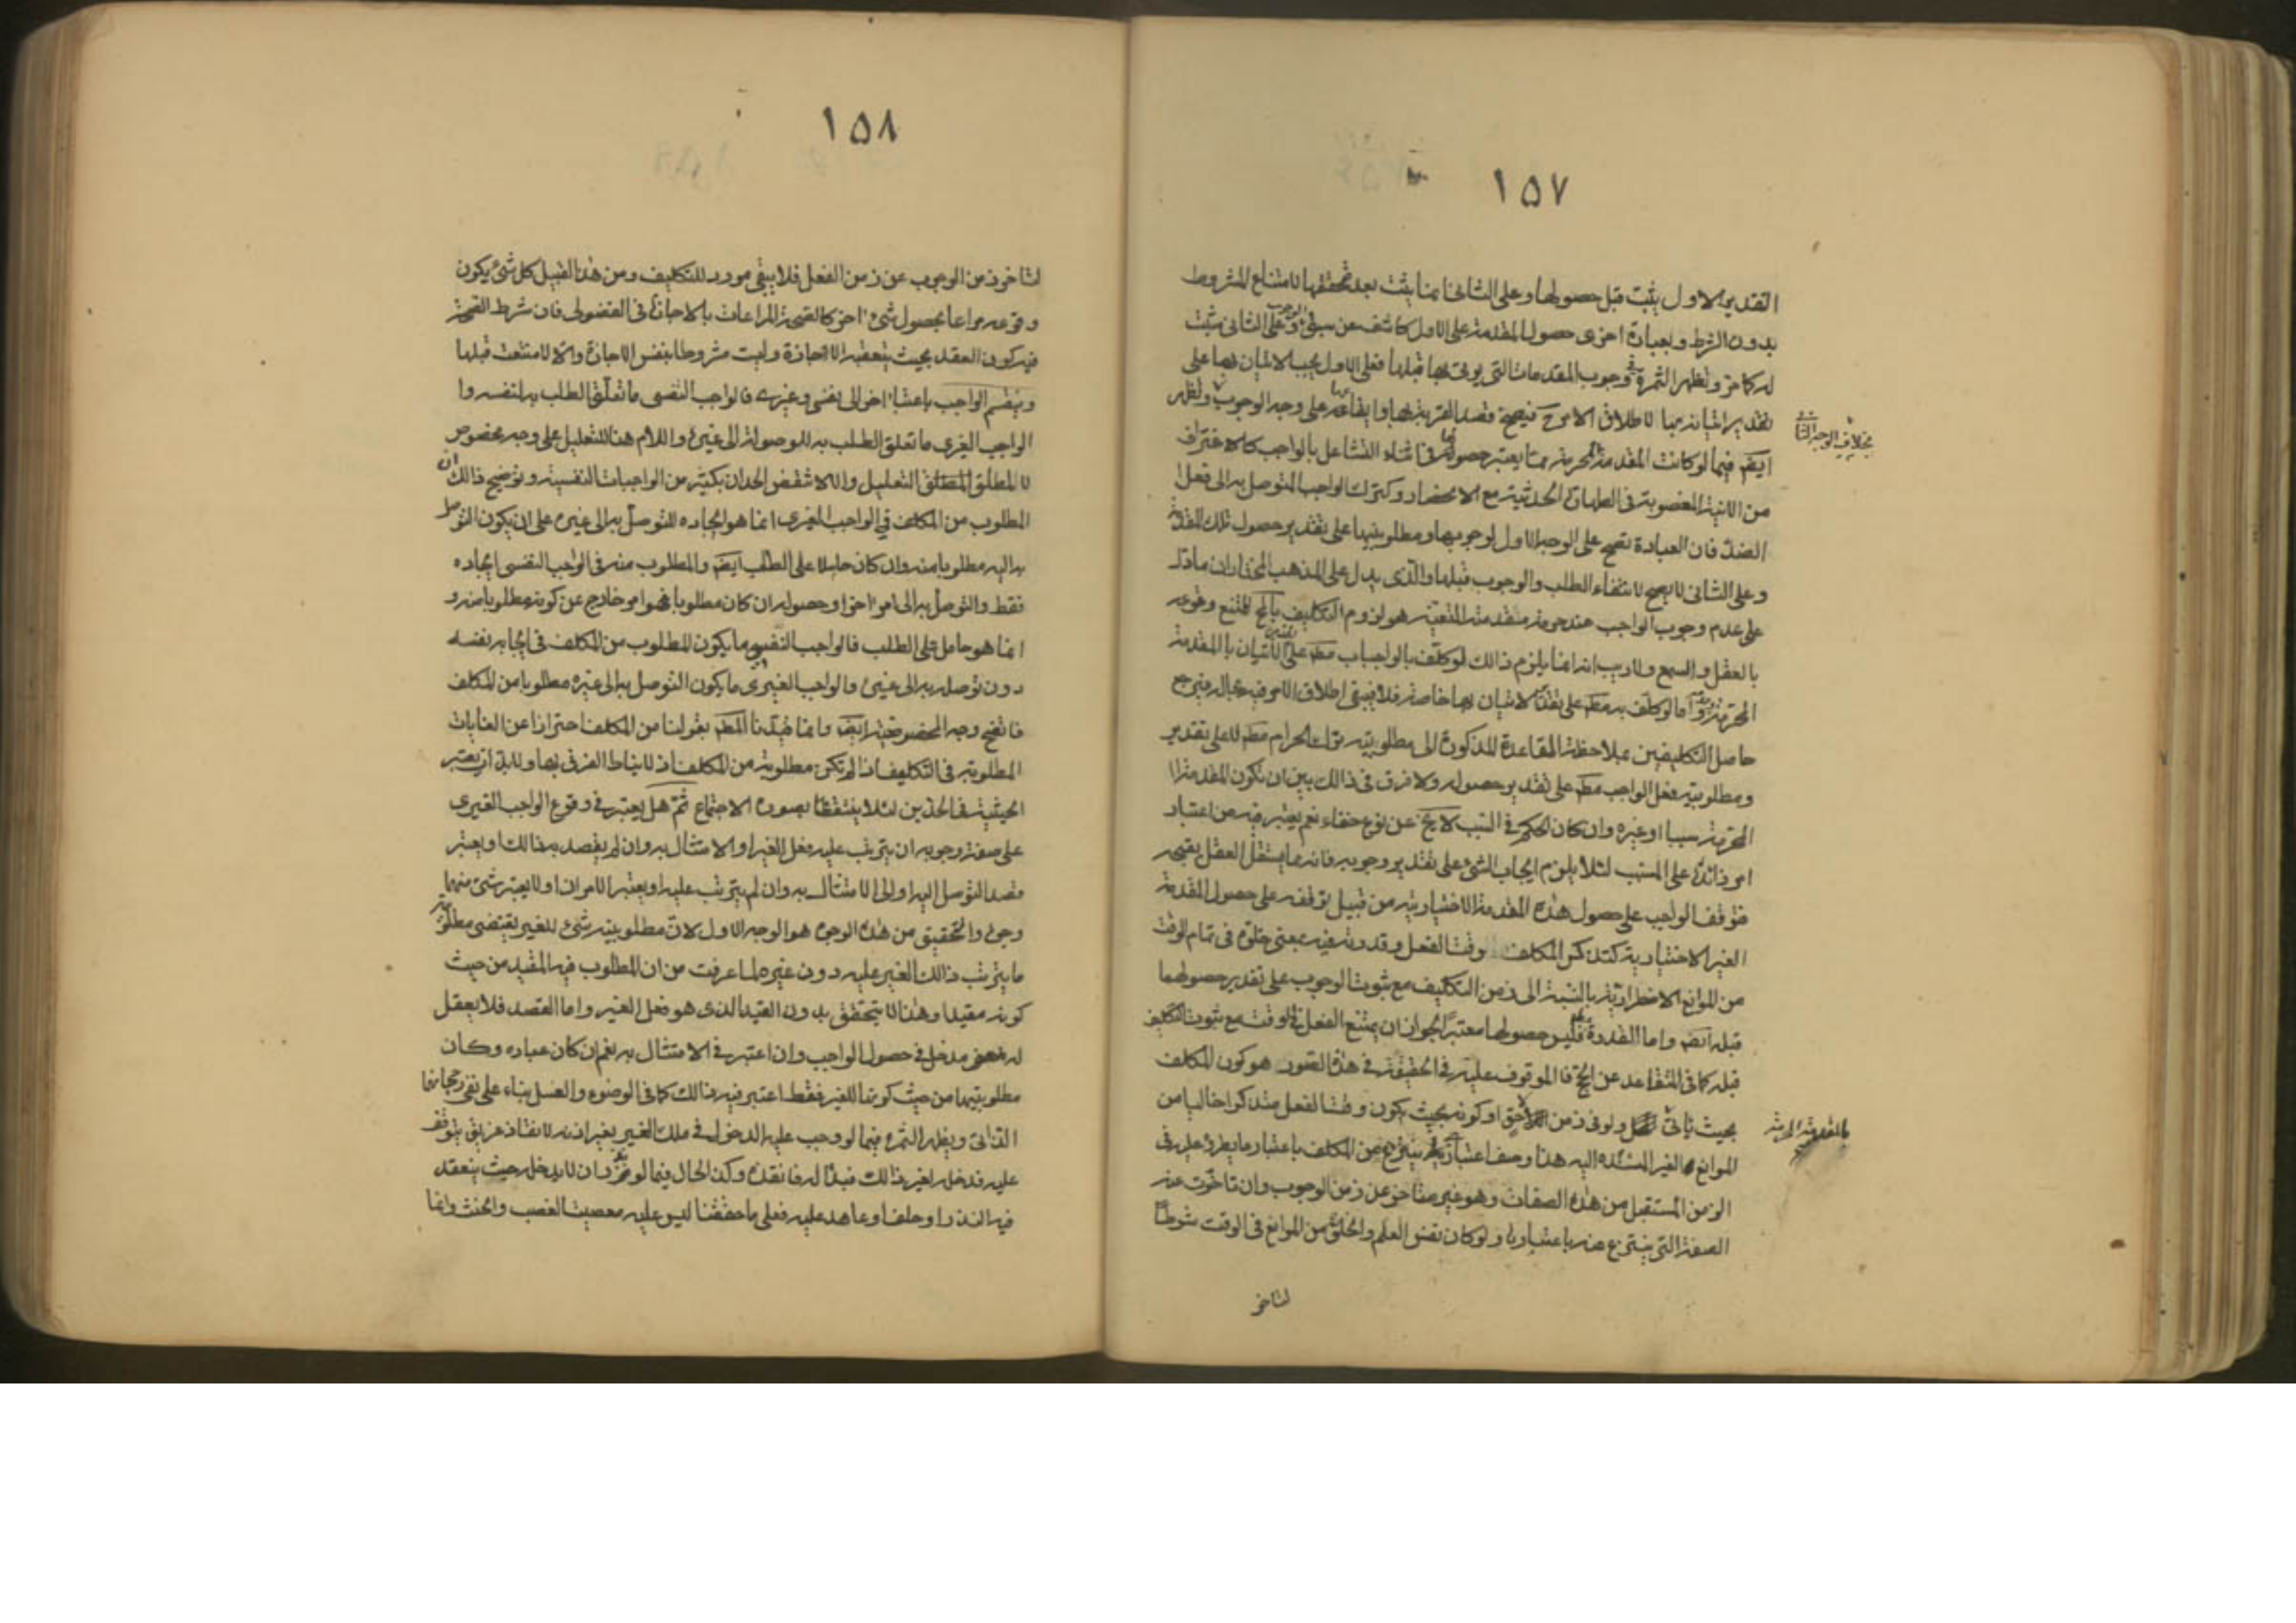 ١٥٧
التقدير الاول يثبت قبل حصولها وعلى الثانى انما يثبت بعد تحققها لامتناع المشروط
بدون الشرط وبعبارة اخرى حصول المقدمة على الاول كاشف عن سبق الوجوب وعلى الثانى مثبت
له كما مر وتظهر الثمرة فى وجوب المقدمات التى يؤتى بها قبلها فعلى الاول يجب الاتيان بها على
تقدير اتيانه بها لاطلاق الامر ح فيصح قصد القربة بها وايقاعها على وجه الوجوب وتظهر
بخلاف الوجه الثانى
ايضا فيما لو كانت المقدمة المحرمة مما يعتبر حصولها فى اثناء التشاغل بالواجب كالاغتراف
من الانية المغصوبة فى الطهارة الحدثية مع الانحصار وكترك الواجب المتوصل به الى فعل
الضد فان العبادة تصح على الوجه الاول لوجوبها ومطلوبيتها على تقدير حصول تلك المقدمة
وعلى الثانى لا يصح لانتفاء الطلب والوجوب قبلها والذى يدل على المذهب المختار ان ما دل
على عدم وجوب الواجب عند حرمة مقدمته المتعينة هو لزوم التكليف بالمح الممتنع وقوعه
بالعقل والسمع ولا ريب انه انما يلزم ذالك لو كلف بالواجب مط على الاتيان بالمقدمة
المحرمة وعدمه واما لو كلف به مط على تقدير الاتيان بها خاصة فلا فيبقى اطلاق الامر فيه بحاله فيرجع
حاصل التكليفين بملاحظة القاعدة المذكورة الى مطلوبية ترك الحرام مط لا على تقدير
ومطلوبية فعل الواجب مط على تقدير حصوله ولا فرق فى ذالك بين ان تكون المقدمة
المحرمة سببا او غيره وان كان الحكم فى السبب لا يخ عن نوع خفاء نعم يعتبر فيه من اعتبار
امر زائد على المسبب لئلا يلزم ايجاب الشئ على تقدير وجوبه فانه مما يستقل العقل بقبحه
فتوقف الواجب على حصول هذه المقدمة الاختيارية من قبيل توقفه على حصول المقدمة
الغير الاختيارية كتذكر المكلف وقت الفعل وقدرته فيه بمعنى خلوه فى تمام الوقت
من الموانع الاضطرارية بالنسبة الى زمن التكليف مع ثبوت الوجوب على تقدير حصولهما
قبله ايضا واما القدرة فليس حصولها معتبرا لجواز ان يمتنع الفعل فى الوقت مع ثبوت التكليف
قبله كما فى المتقاعد عن الحج فالموقوف عليه فى الحقيقة فى هذه الصور هو كون المكلف
بحيث ياتى ولو فى زمن اللاحق او كونه بحيث يكون وقت الفعل متذكرا خاليا من
بالمقدمة المحرمة
الموانع الغير المستنده اليه هذا وصف اعتبارى ينتزع من المكلف باعتبار ما يطرء عليه فى
الزمن المستقبل من هذه الصفات وهو غير متاخر عن زمن الوجوب وان تاخرت عنه
الصفة التى ينتزع عنه باعتبارها ولو كان نفس العلم والخلو من الموانع فى الوقت شرطا
لتاخر
١٥٨
لتاخر زمن الوجوب عن زمن الفعل فلا يبقى مورد للتكليف ومن هذا القبيل كل شئ يكون
وقوعه مراعا بحصول شئ اخر كالصحة المراعات بالاجازة فى الفضولى فان شرط الصحة
فيه كون العقد بحيث يتعقبه الاجازة وليست مشروطة بنفس الاجازة والا لامتنعت قبلها
وينقسم الواجب باعتبار اخر الى نفسى وغيرى فالواجب النفسى ما تعلق الطلب به لنفسه وا
الواجب الغيرى ما تعلق الطلب به للوصولة الى غيره واللام هنا للتعليل على وجه مخصوص
لا المطلق التعليل والا لانتقض الحدان بكثير من الواجبات النفسية وتوضيح ذالك ان
المطلوب من المكلف فى الواجب الغيرى انما هو ايجاده للتوصل به الى غيره على ان يكون التوصل
به اليه مطلوبا منه وان كان حاملا على الطلب ايضا والمطلوب منه فى الواجب النفسى ايجاده
فقط والتوصل به الى امر اخر او حصوله ان كان مطلوبا فهو امر خارج عن كونه مطلوبا منه و
انما هو حامل على الطلب فالواجب النفسى ما يكون المطلوب من المكلف فى ايجابه نفسه
دون توصله به الى غيره والواجب الغيرى ما يكون التوصل به الى غيره مطلوبا من المكلف
فاتضح وجه المخصوصية ايضا وانما قيدنا المط بقولنا من المكلف احترازا عن الغايات
المطلوبة فى التكليف اذا لم تكن مطلوبة من المكلف اذ لا يناط الفرق بها ولا بد ان يعتبر
الحيثية فى الحدين لئلا ينتقضا بصورة الاجتماع ثم هل يعتبر فى وقوع الواجب الغيرى
على صفة وجوبه ان يترتب عليه فعل الغير او الامتثال به وان لم يقصد به ذالك او يعتبر
قصد التوصل اليه او الى الامتثال به وان لم يترتب عليه او يعتبر الامران او لا يعتبر شئ منهما
وجوه والتحقيق من هذه الوجوه هو الوجه الاول لان مطلوبية شئ للغير تقتضى مطلوبية
ما يترتب ذالك الغير عليه دون غيره لما عرفت من ان المطلوب فيه المقيد من حيث
كونه مقيدا وهذا لا يتحقق بدون القيد الذى هو فعل الغير واما القصد فلا يعقل
له مدخل فى حصول الواجب وان اعتبر فى الامتثال به نعم ان كان عباده وكان
مطلوبيتها من حيث كونها للغير فقط اعتبر فيه ذالك كما فى الوضوء والغسل بناء على نفى رجحانهما
الذاتى ويظهر الثمرة فيما لو وجب عليه الدخول فى ملك الغير بغير اذنه لانقاذ غريق يتوقف
عليه فدخله لغير ذالك فبدا له فانقذه وكذا الحال فيما لو نذر ان لا يدخله حيث ينعقد
فيه النذر او حلف او عاهد عليه فعلى ما حققنا ليس عليه معصية الغصب والحنث وانما